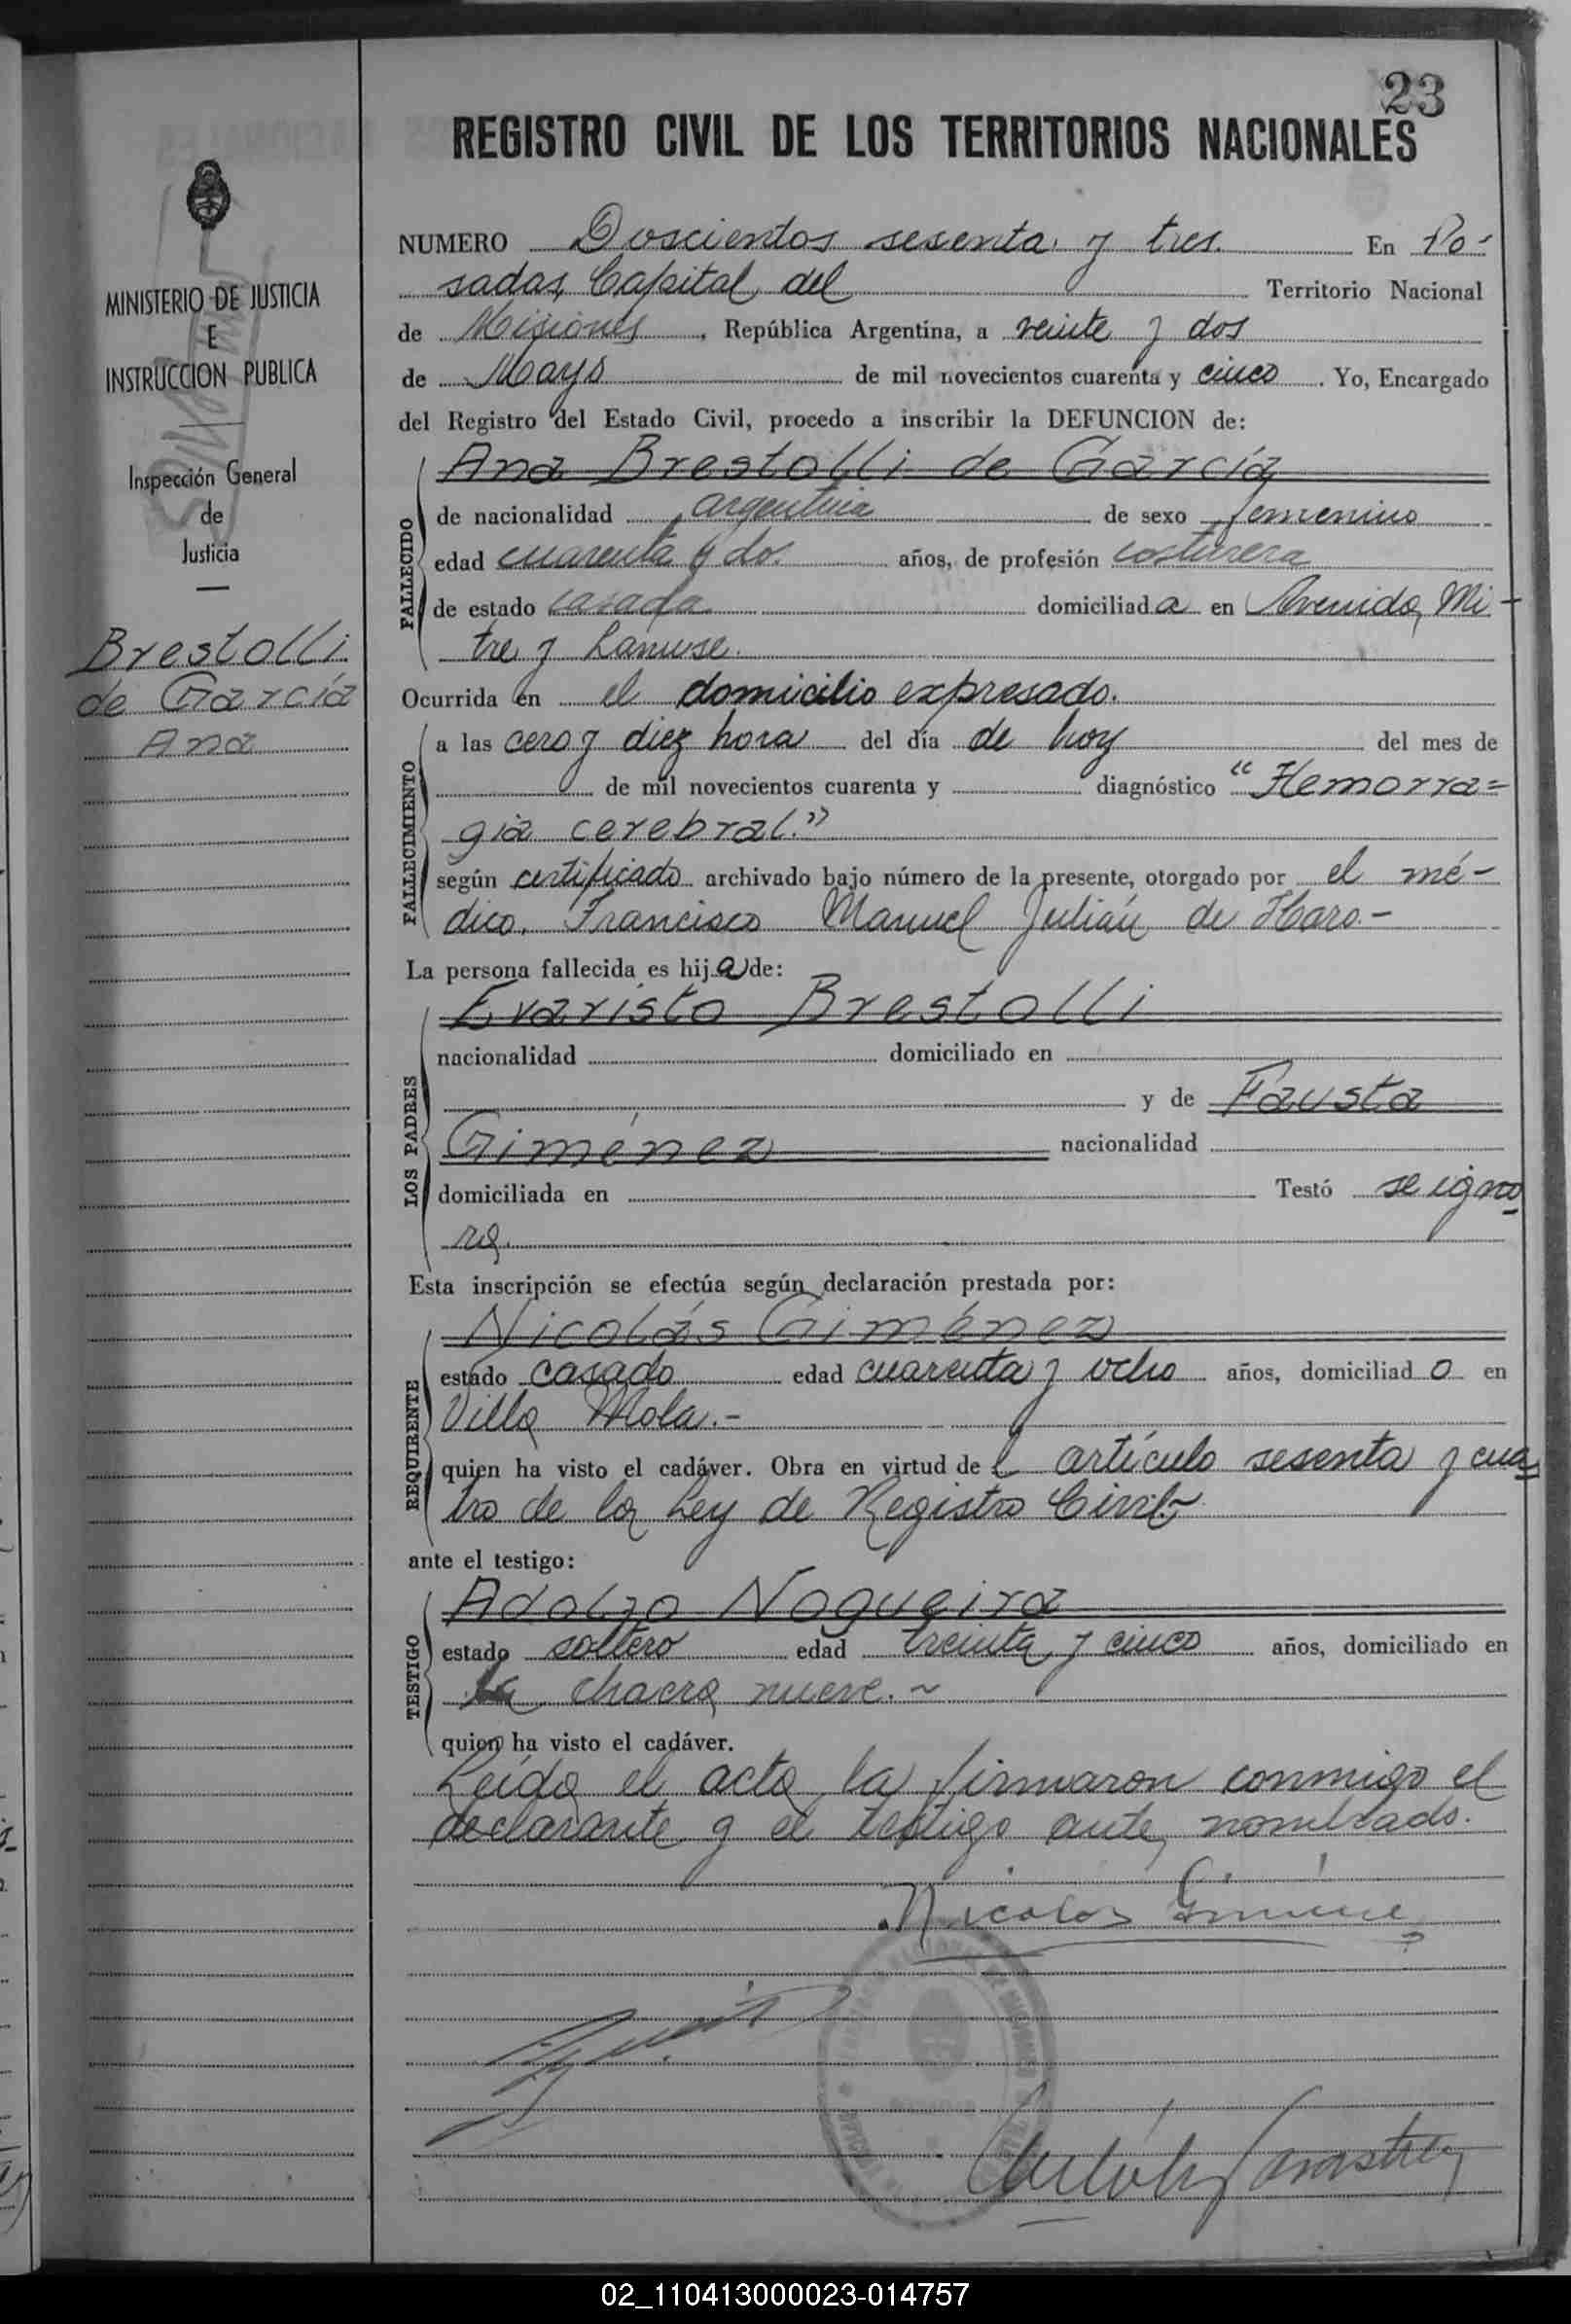 23
REGISTRO CIVIL DE LOS TERRITORIOS NACIONALES
MINISTERIO DE JUSTICIA
E
INSTRUCCION PUBLICA
Inspección General
de
Justicia
Brestolli
de García
Ana
NUMERO Doscientos sesenta y tres. En Po-
sadas, Capital del Territorio Nacional
de Misiones, República Argentina, a veinte y dos
de Mayo de mil novecientos cuarenta y cinco. Yo, Encargado
del Registro del Estado Civil, procedo a inscribir la DEFUNCION de:
FALLECIDO
Ana Brestolli de García
de nacionalidad argentina de sexo femenino
edad cuarenta y dos años, de profesión costurera
de estado casada domiciliada en Avenida Mi-
tre y Lanusse.
Ocurrida en el domicilio expresado.
FALLECIMIENTO
a las cero y diez hora del día de hoy del mes de
de mil novecientos cuarenta y diagnóstico "Hemorra=
gia cerebral."
según certificado archivado bajo número de la presente, otorgado por el mé-
dico, Francisco Manuel Julián de Haro.-
La persona fallecida es hija de:
LOS PADRES
Evaristo Brestolli
nacionalidad domiciliado en
y de Fausta
Giménez nacionalidad
domiciliada en Testó se igno
ra.
Esta inscripción se efectúa según declaración prestada por:
REQUIRENTE
Nicolás Giménez
estado casado edad cuarenta y ocho años, domiciliado en
Villa Mola.-
quien ha visto el cadáver. Obra en virtud del artículo sesenta y cua
tro de la Ley de Registro Civil.-
ante el testigo:
TESTIGO
Adolfo Nogueira
estado soltero edad treinta y cinco años, domiciliado en
la chacra nueve.~
quien ha visto el cadáver.
Leída el acta, la firmaron conmigo el
declarante y el testigo ante nombrado.
Nicolás Giménez
02_110413000023-014757